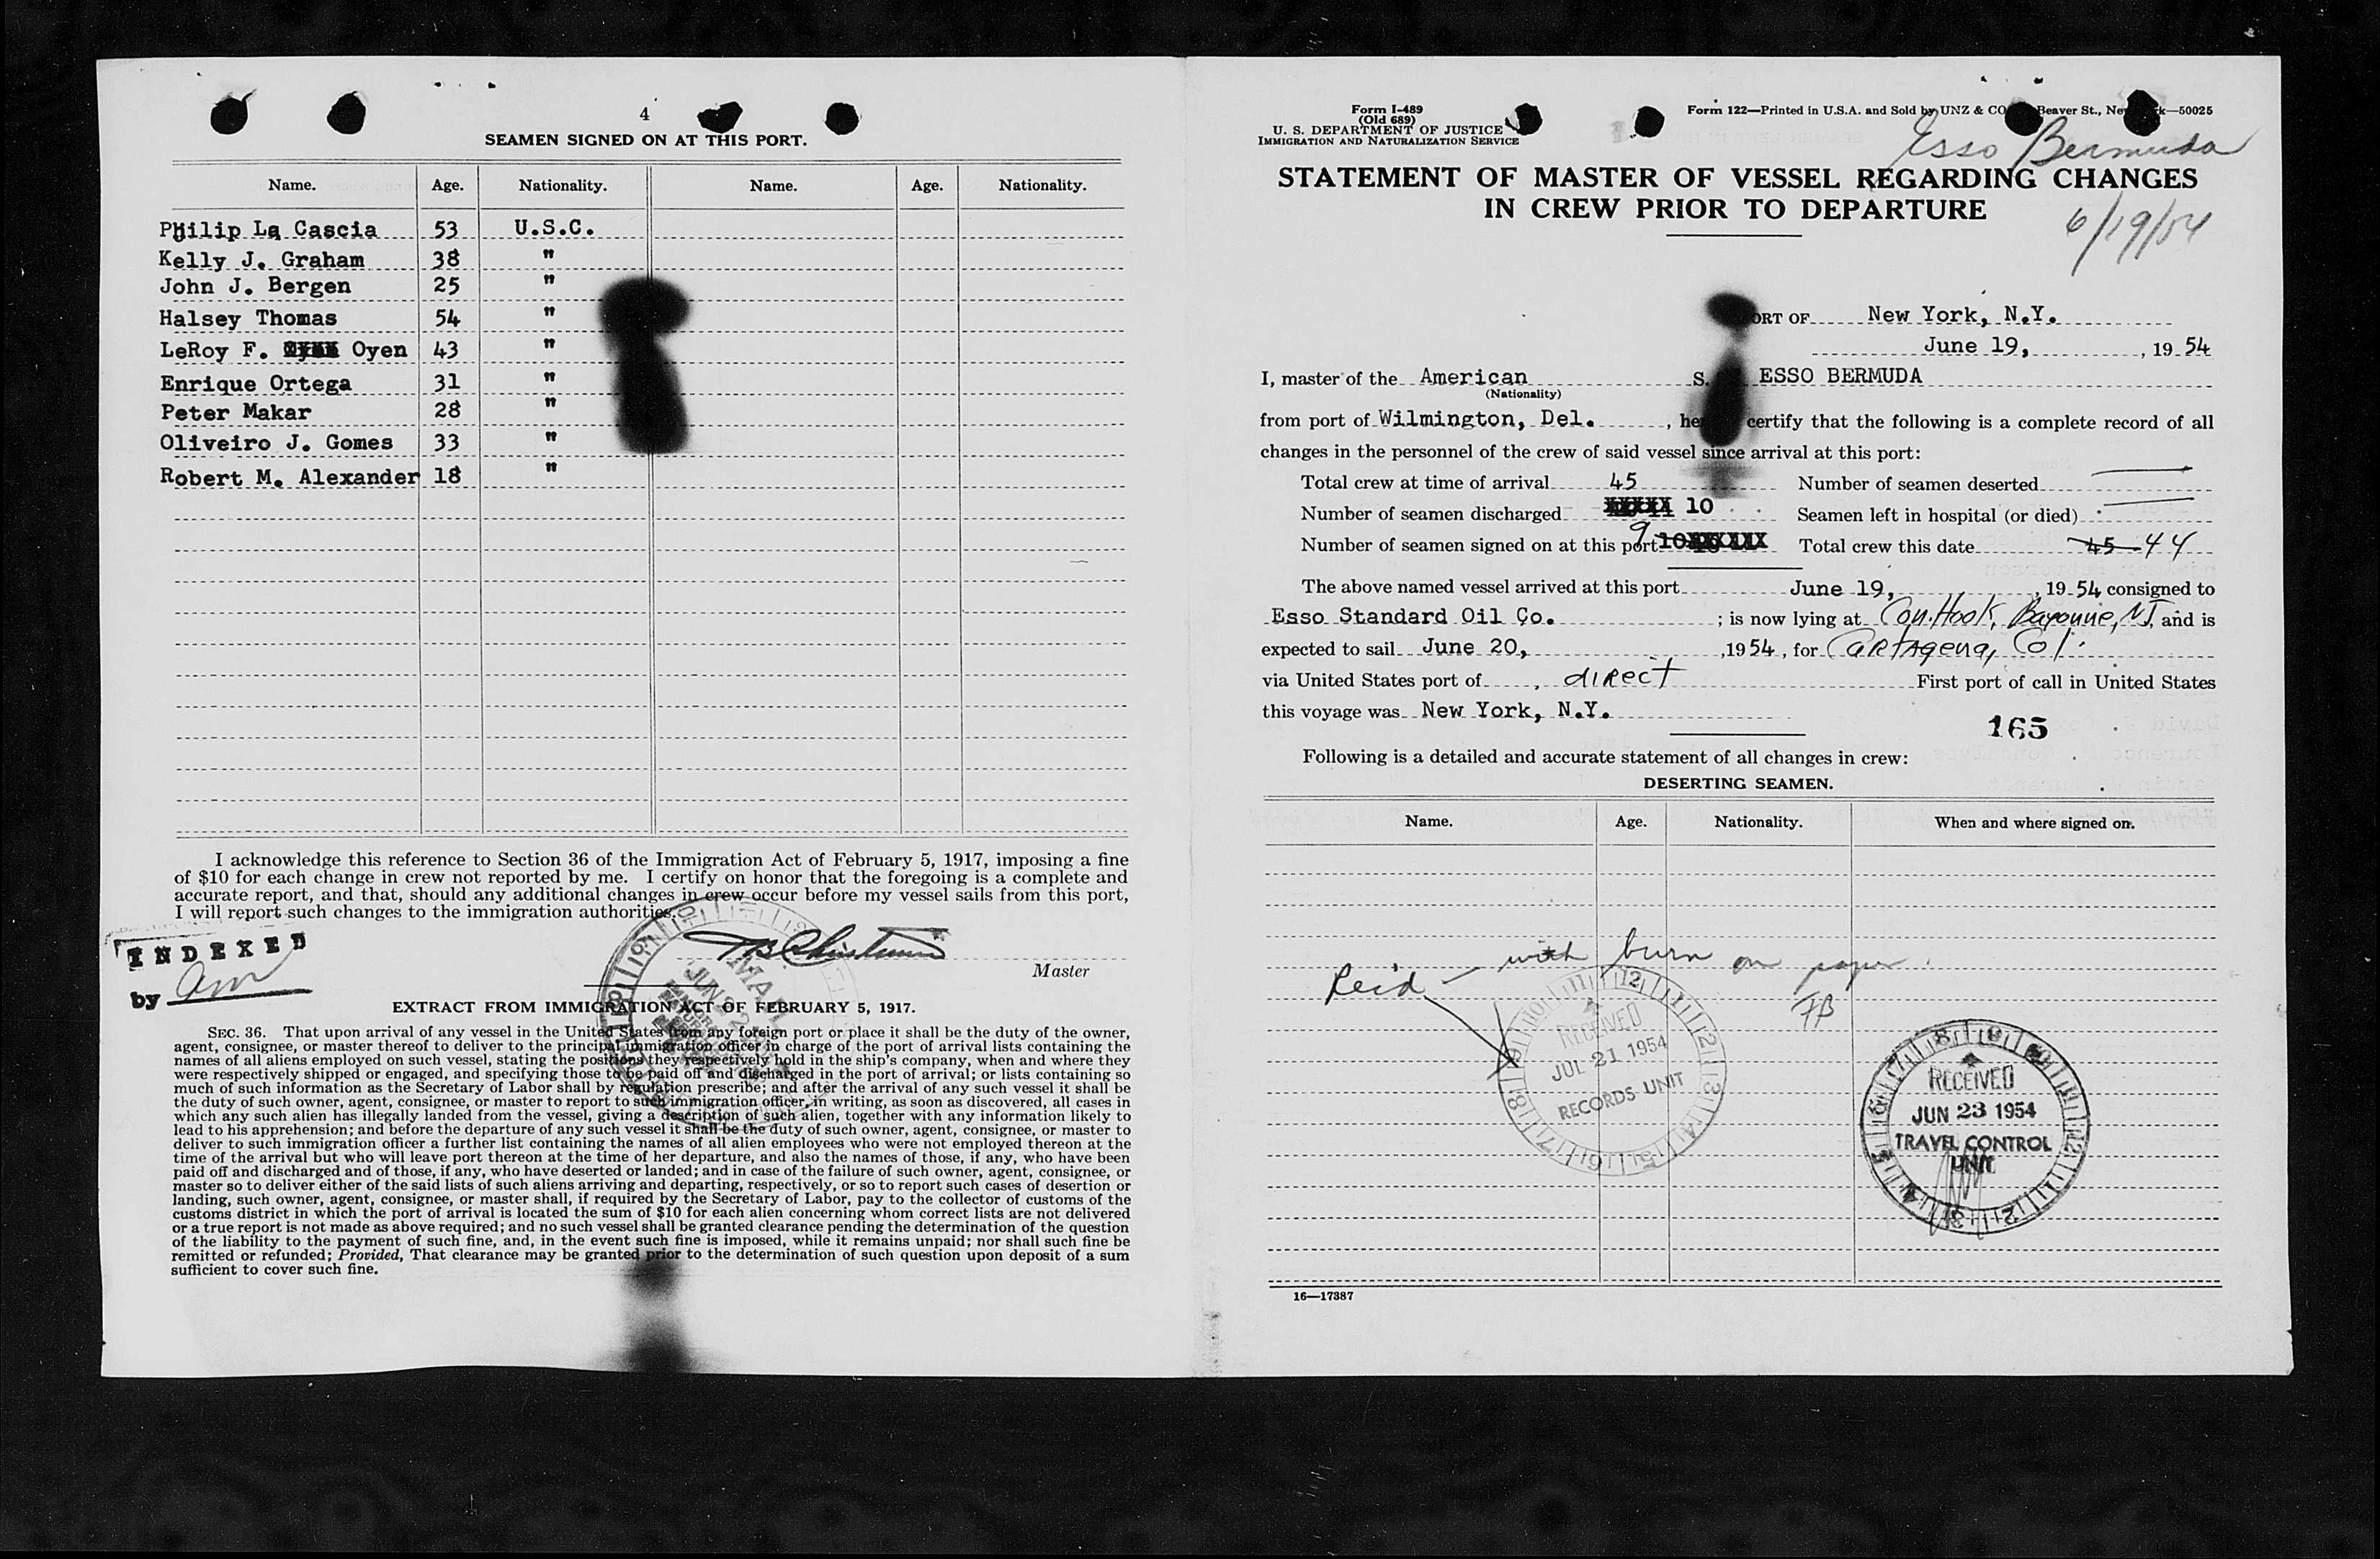 4
SEAMEN SIGNED ON AT THIS PORT.
Name. Age. Nationality. Name. Age. Nationality.
Philip La Cascia 53 U.S.C.
Kelly J. Graham 38 "
John J. Bergen 25 "
Halsey Thomas 54 "
LeRoy F. Oyen 43 "
Enrique Ortega 31 "
Peter Makar 28 "
Oliveiro J. Gomes 33 "
Robert M. Alexander 18 "
I acknowledge this reference to Section 36 of the Immigration Act of February 5, 1917, imposing a fine
of $10 for each change in crew not reported by me. I certify on honor that the foregoing is a complete and
accurate report, and that, should any additional changes in crew occur before my vessel sails from this port,
I will report such changes to the immigration authorities.
INDEXED
by
Master
EXTRACT FROM IMMIGRATION ACT OF FEBRUARY 5, 1917.
SEC. 36. That upon arrival of any vessel in the United States from any foreign port or place it shall be the duty of the owner,
agent, consignee, or master thereof to deliver to the principal immigration officer in charge of the port of arrival lists containing the
names of all aliens employed on such vessel, stating the positions they respectively hold in the ship's company, when and where they
were respectively shipped or engaged, and specifying those to be paid off and discharged in the port of arrival; or lists containing so
much of such information as the Secretary of Labor shall by regulation prescribe; and after the arrival of any such vessel it shall be
the duty of such owner, agent, consignee, or master to report to such immigration officer, in writing, as soon as discovered, all cases in
which any such alien has illegally landed from the vessel, giving a description of such alien, together with any information likely to
lead to his apprehension; and before the departure of any such vessel it shall be the duty of such owner, agent, consignee, or master to
deliver to such immigration officer a further list containing the names of all alien employees who were not employed thereon at the
time of the arrival but who will leave port thereon at the time of her departure, and also the names of those, if any, who have been
paid off and discharged and of those, if any, who have deserted or landed; and in case of the failure of such owner, agent, consignee, or
master so to deliver either of the said lists of such aliens arriving and departing, respectively, or so to report such cases of desertion or
landing, such owner, agent, consignee, or master shall, if required by the Secretary of Labor, pay to the collector of customs of the
customs district in which the port of arrival is located the sum of $10 for each alien concerning whom correct lists are not delivered
or a true report is not made as above required; and no such vessel shall be granted clearance pending the determination of the question
of the liability to the payment of such fine, and, in the event such fine is imposed, while it remains unpaid; nor shall such fine be
remitted or refunded; Provided, That clearance may be granted prior to the determination of such question upon deposit of a sum
sufficient to cover such fine.
Form I-489
(Old 689)
U. S. DEPARTMENT OF JUSTICE
IMMIGRATION AND NATURALIZATION SERVICE
Form 122—Printed in U.S.A. and Sold by UNZ & CO Beaver St., —50025
Esso Bermuda
STATEMENT OF MASTER OF VESSEL REGARDING CHANGES
IN CREW PRIOR TO DEPARTURE
6/19/54
ORT OF New York, N.Y.
June 19, , 19 54
I, master of the American S. ESSO BERMUDA
(Nationality)
from port of Wilmington, Del. , certify that the following is a complete record of all
changes in the personnel of the crew of said vessel since arrival at this port:
Total crew at time of arrival 45 Number of seamen deserted —
Number of seamen discharged 10 Seamen left in hospital (or died) —
Number of seamen signed on at this port 9 10 Total crew this date 45 44
The above named vessel arrived at this port June 19, , 19 54 consigned to
Esso Standard Oil Co. ; is now lying at Con. Hook, Bayonne, NJ, and is
expected to sail June 20, , 19 54 , for Cartagena, Col.
via United States port of direct First port of call in United States
this voyage was New York, N.Y.
165
Following is a detailed and accurate statement of all changes in crew:
DESERTING SEAMEN.
Name. Age. Nationality. When and where signed on.
Reid — with burn on paper.
FB
RECEIVED
JUL 21 1954
RECORDS UNIT
RECEIVED
JUN 23 1954
TRAVEL CONTROL
UNIT
16—17387